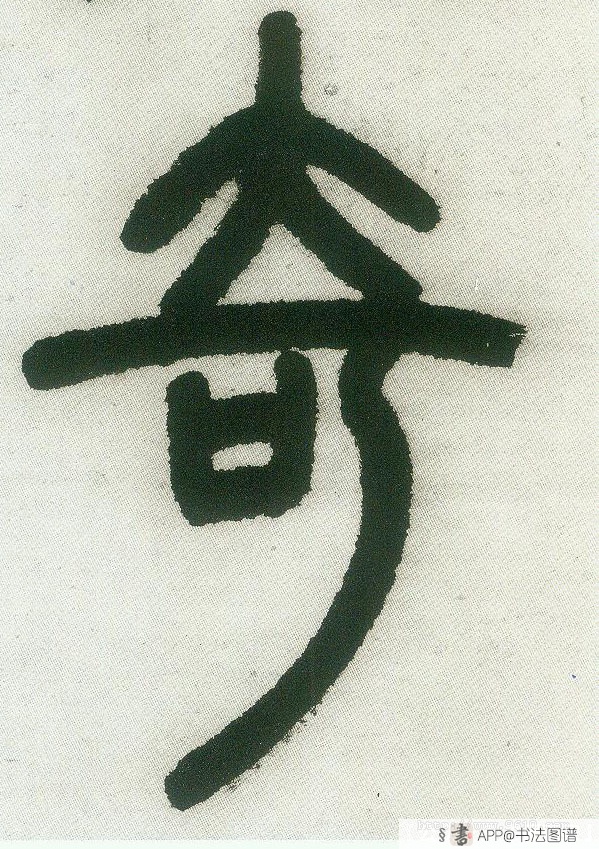 奇
§書 APP@书法图谱